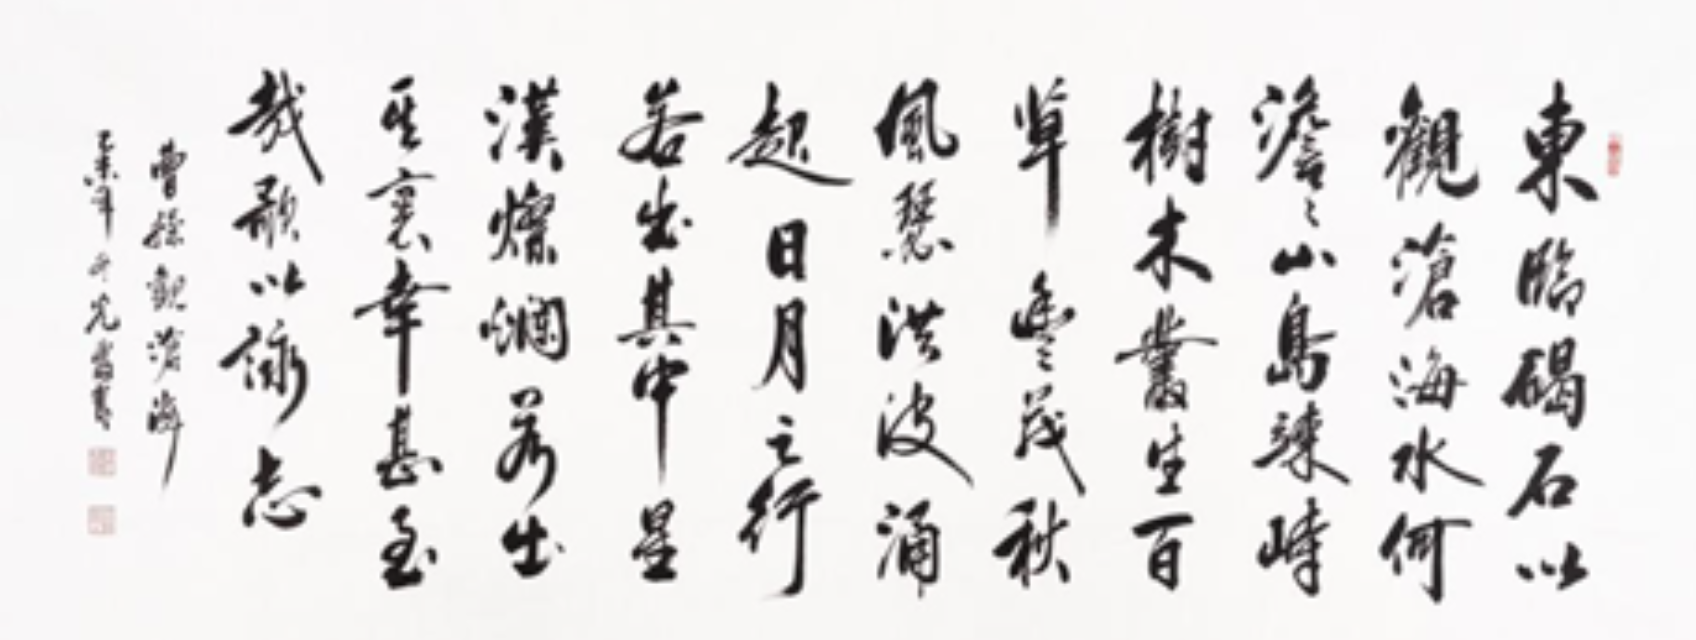 東臨碣石以
觀滄海水何
澹々山島竦峙
樹木叢生百
草豐茂秋
風瑟洪波涌
起日月之行
若出其中星
漢燦爛若出
其裏幸甚至
哉歌以詠志
曹操觀滄海
乙未年書